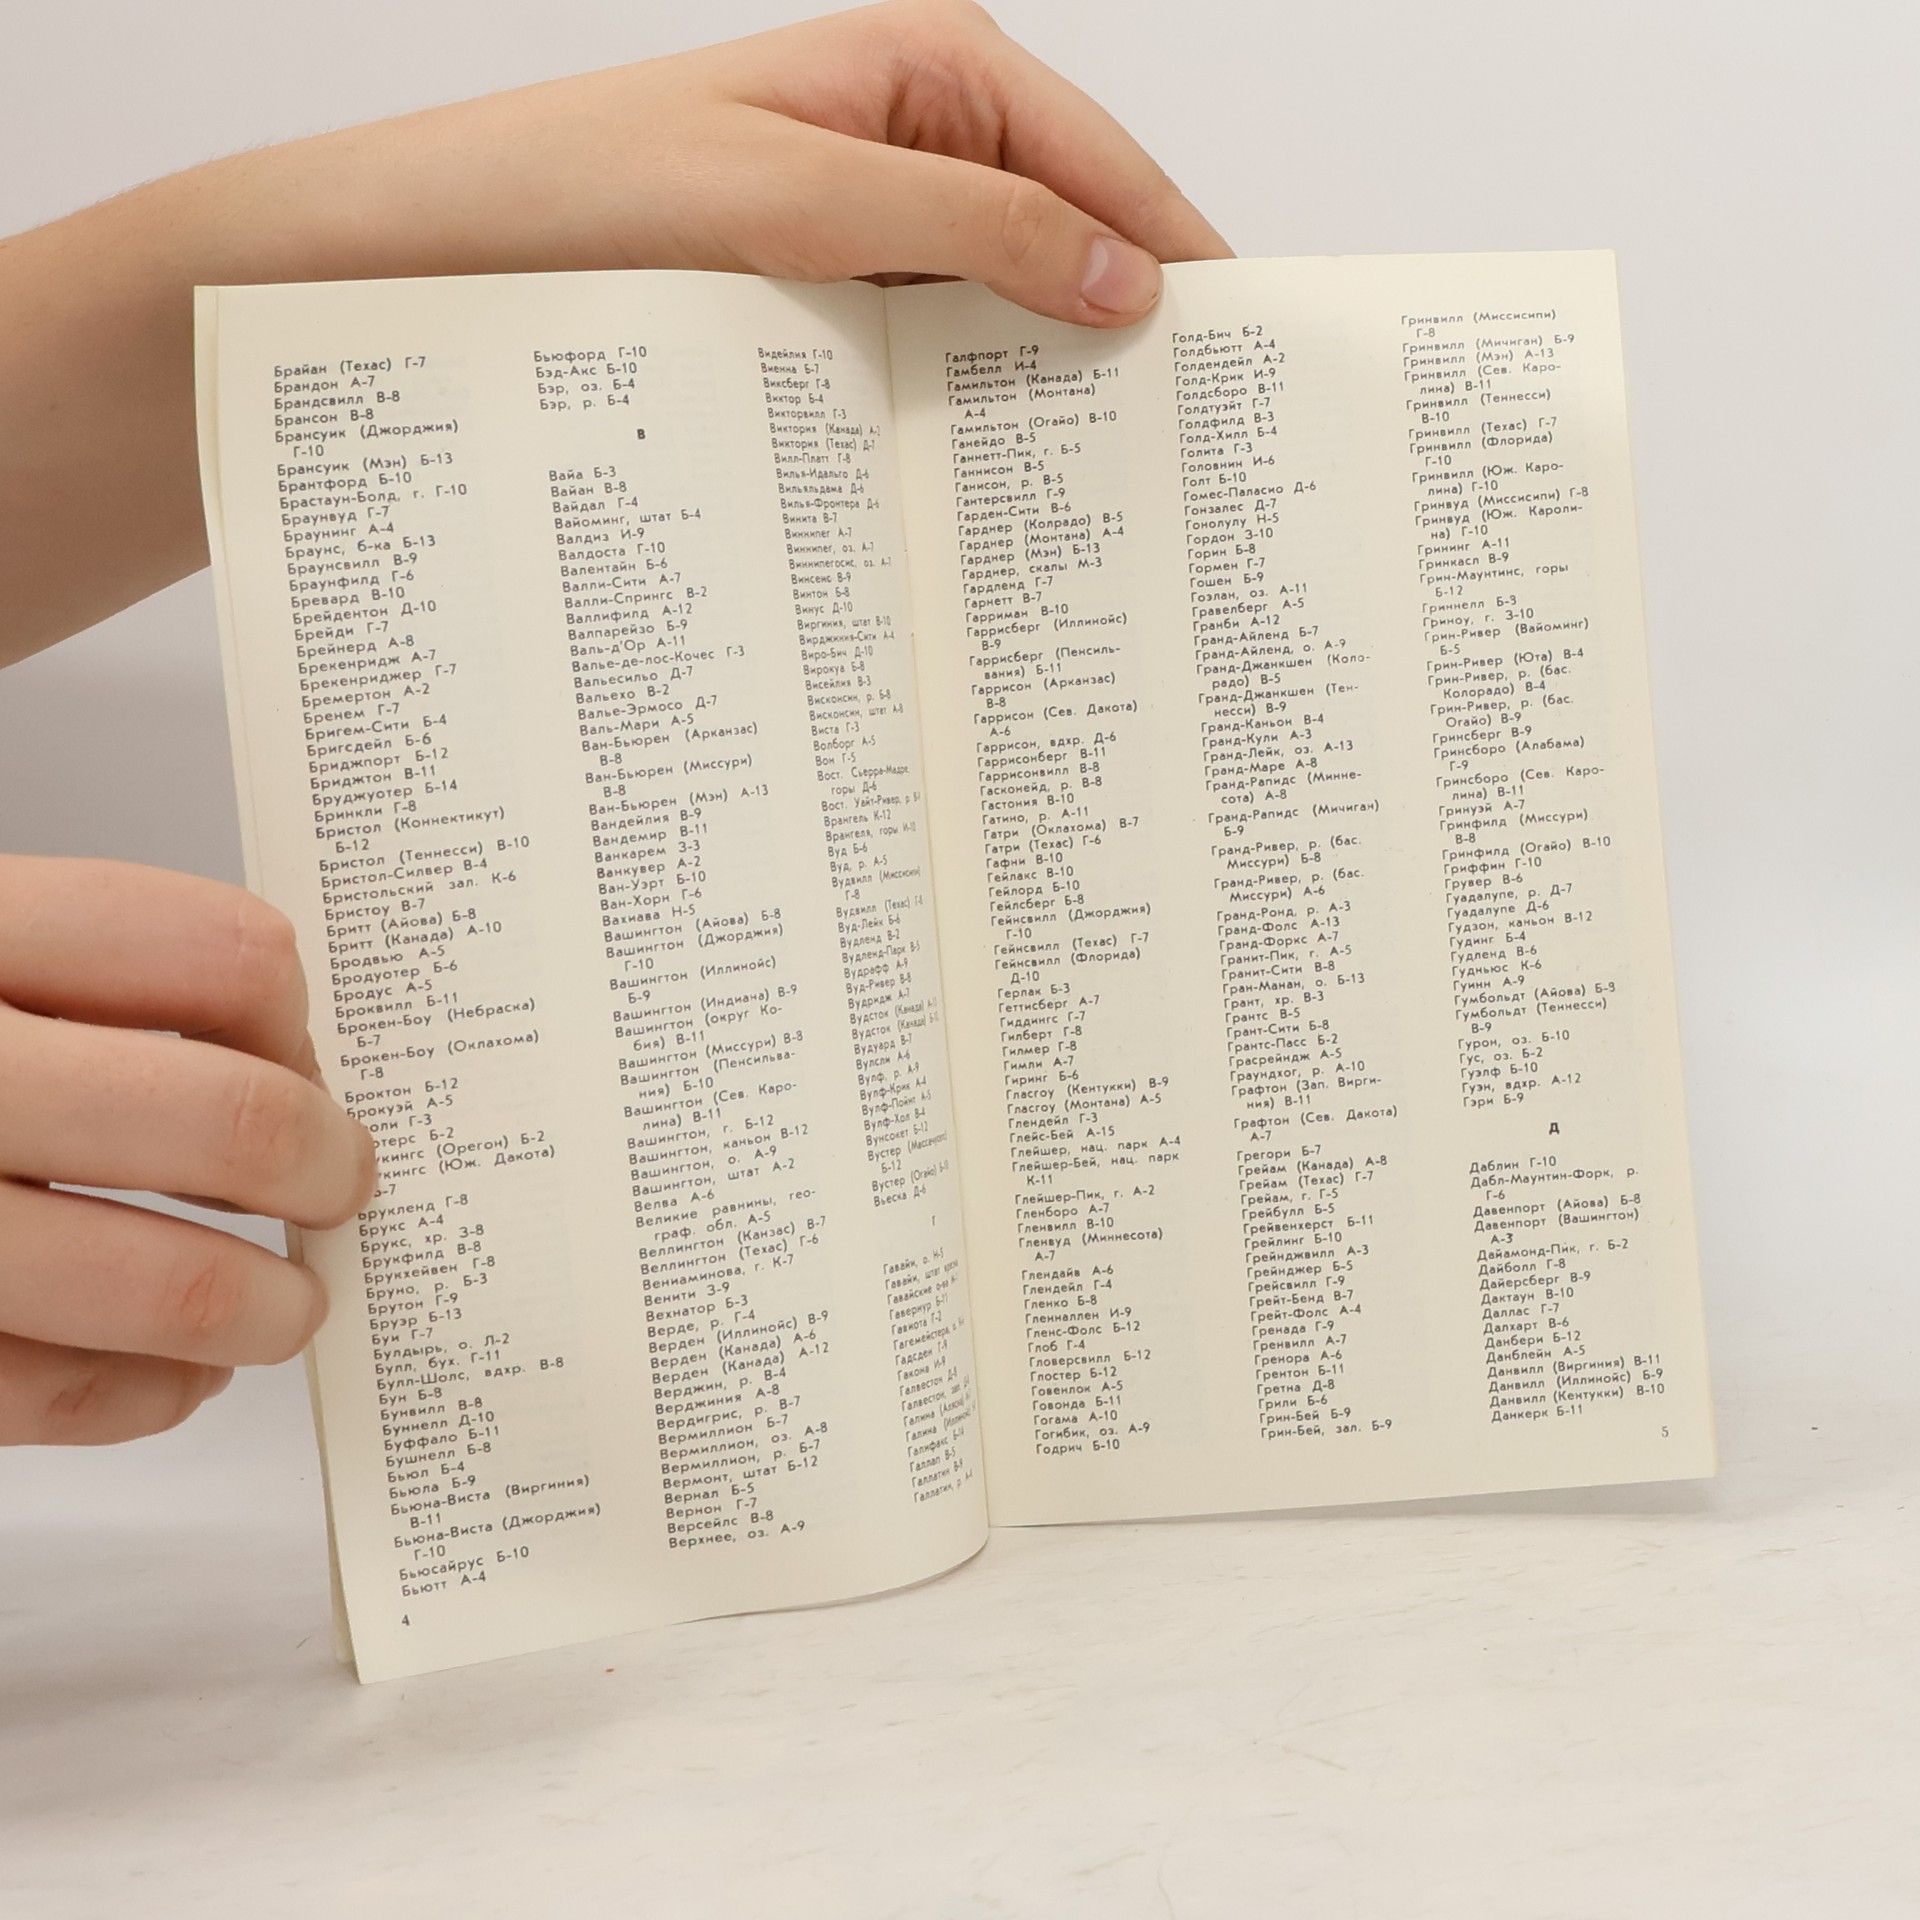 Брайан (Техас) Г-7
Брандон А-7
Брандсвилл В-8
Брансон В-8
Брансуик (Джорджия)
Г-10
Брансуик (Мэн) Б-13
Брантфорд Б-10
Брастаун-Болд, г. Г-10
Браунвуд Г-7
Браунинг А-4
Браунс, б-ка Б-13
Браунсвилл В-9
Браунфилд Г-6
Бревард В-10
Брейдентон Д-10
Брейди Г-7
Брейнерд А-8
Брекенридж А-7
Брекенриджер Г-7
Бремертон А-2
Бренем Г-7
Бригем-Сити Б-4
Бригсдейл Б-6
Бриджпорт Б-12
Бриджтон В-11
Бруджуотер Б-14
Бринкли Г-8
Бристол (Коннектикут)
Б-12
Бристол (Теннесси) В-10
Бристол-Силвер В-4
Бристольский зал. К-6
Бристоу В-7
Бритт (Айова) Б-8
Бритт (Канада) А-10
Бродвью А-5
Бродуотер Б-6
Бродус А-5
Броквилл Б-11
Брокен-Боу (Небраска)
Б-7
Брокен-Боу (Оклахома)
Г-8
Броктон Б-12
Брокуэй А-5
Г-3
Б-2
(Орегон) Б-2
(Юж. Дакота)
Брукленд Г-8
Брукс А-4
Брукс, хр. З-8
Брукфилд В-8
Брукхейвен Г-8
Бруно, р. Б-3
Брутон Г-9
Бруэр Б-13
Буи Г-7
Булдырь, о. Л-2
Булл, бух. Г-11
Булл-Шолс, вдхр. В-8
Бун Б-8
Бунвилл В-8
Буннелл Д-10
Буффало Б-11
Бушнелл Б-8
Бьюл Б-4
Бьюла Б-9
Бьюна-Виста (Виргиния)
В-11
Бьюна-Виста (Джорджия)
Г-10
Бьюсайрус Б-10
Бьютт А-4
4
Бьюфорд Г-10
Бэд-Акс Б-10
Бэр, оз. Б-4
Бэр, р. Б-4
В
Вайа Б-3
Вайан В-8
Вайдал Г-4
Вайоминг, штат Б-4
Валдиз И-9
Валдоста Г-10
Валентайн Б-6
Валли-Сити А-7
Валли-Спрингс В-2
Валлифилд А-12
Валпарейзо Б-9
Валь-д'Ор А-11
Валье-де-лос-Кочес Г-3
Вальесильо Д-7
Вальехо В-2
Валье-Эрмосо Д-7
Валь-Мари А-5
Ван-Бьюрен (Арканзас)
В-8
Ван-Бьюрен (Миссури)
В-8
Ван-Бьюрен (Мэн) А-13
Вандейлия В-9
Вандемир В-11
Ванкарем З-3
Ванкувер А-2
Ван-Уэрт Б-10
Ван-Хорн Г-6
Вахиава Н-5
Вашингтон (Айова) Б-8
Вашингтон (Джорджия)
Г-10
Вашингтон (Иллинойс)
Б-9
Вашингтон (Индиана) В-9
Вашингтон (округ Ко-
бия) В-11
Вашингтон (Миссури) В-8
Вашингтон (Пенсильва-
ния) Б-10
Вашингтон (Сев. Каро-
лина) В-11
Вашингтон, г. Б-12
Вашингтон, каньон В-12
Вашингтон, о. А-9
Вашингтон, штат А-2
Велва А-6
Великие равнины, гео-
граф. обл. А-5
Веллингтон (Канзас) В-7
Веллингтон (Техас) Г-6
Вениаминова, г. К-7
Венити З-9
Вехнатор Б-3
Верде, р. Г-4
Верден (Иллинойс) В-9
Верден (Канада) А-6
Верден (Канада) А-12
Верджин, р. В-4
Верджиния А-8
Вердигрис, р. В-7
Вермиллион Б-7
Вермиллион, оз. А-8
Вермиллион, р. Б-7
Вермонт, штат Б-12
Вернал Б-5
Вернон Г-7
Версейлс В-8
Верхнее, оз. А-9
Видейлия Г-10
Виенна Б-7
Виксберг Г-8
Виктор Б-4
Викторвилл Г-3
Виктория (Канада) А-2
Виктория (Техас) Д-7
Вилл-Платт Г-8
Вилья-Идальго Д-6
Вильяльдама Д-6
Вилья-Фронтера Д-6
Винита В-7
Виннипег А-7
Виннипег, оз. А-7
Виннипегосис, оз. А-7
Винсенс В-9
Винтон Б-8
Винус Д-10
Виргиния, штат В-10
Вирджиния-Сити А-4
Виро-Бич Д-10
Вирокуа Б-8
Висейлия В-3
Висконсин, р. Б-8
Висконсин, штат А-8
Виста Г-3
Волборг А-5
Вон Г-5
Вост. Сьерра-Мадре,
горы Д-6
Вост. Уайт-Ривер, р.
Врангель К-12
Врангеля, горы И-10
Вуд Б-6
Вуд, р. А-5
Вудвилл (Миссисипи)
Г-8
Вудвилл (Техас) Г-8
Вуд-Лейк Б-6
Вудленд В-2
Вудленд-Парк В-5
Вудрафф А-9
Вуд-Ривер В-8
Вудридж А-7
Вудсток (Канада) А-13
Вудсток (Канада) Б-10
Вудуард В-7
Вулсли А-6
Вулф, р. А-9
Вулф-Крик А-4
Вулф-Пойнт А-5
Вулф-Хол В-4
Вунсокет Б-12
Вустер (Массачусетс)
Б-12
Вустер (Огайо) Б-10
Вьеска Д-6
Г
Гавайи, о. Н-5
Гавайи, штат
Гавайские о-ва
Гавернур Б-11
Гавиота Г-2
Гагемейстера, о.
Гадсден Г-9
Гакона И-9
Галвестон Д-8
Галвестон, зал.
Галина (Аляска)
Галина (Иллинойс)
Галифакс Б-14
Галлап В-5
Галлатин В-9
Галлатин, р. А-4
Галфпорт Г-9
Гамбелл И-4
Гамильтон (Канада) Б-11
Гамильтон (Монтана)
А-4
Гамильтон (Огайо) В-10
Ганейдо В-5
Ганнетт-Пик, г. Б-5
Ганнисон В-5
Ганисон, р. В-5
Гантерсвилл Г-9
Гарден-Сити В-6
Гарднер (Колрадо) В-5
Гарднер (Монтана) А-4
Гарднер (Мэн) Б-13
Гарднер, скалы М-3
Гардленд Г-7
Гарнетт В-7
Гарриман В-10
Гаррисберг (Иллинойс)
В-9
Гаррисберг (Пенсиль-
вания) Б-11
Гаррисон (Арканзас)
В-8
Гаррисон (Сев. Дакота)
А-6
Гаррисон, вдхр. Д-6
Гаррисонберг В-11
Гаррисонвилл В-8
Гасконейд, р. В-8
Гастония В-10
Гатино, р. А-11
Гатри (Оклахома) В-7
Гатри (Техас) Г-6
Гафни В-10
Гейлакс В-10
Гейлорд Б-10
Гейлсберг Б-8
Гейнсвилл (Джорджия)
Г-10
Гейнсвилл (Техас) Г-7
Гейнсвилл (Флорида)
Д-10
Герлак Б-3
Геттисберг А-7
Гиддингс Г-7
Гилберт Г-8
Гилмер Г-8
Гимли А-7
Гиринг Б-6
Гласгоу (Кентукки) В-9
Гласгоу (Монтана) А-5
Глендейл Г-3
Глейс-Бей А-15
Глейшер, нац. парк А-4
Глейшер-Бей, нац. парк
К-11
Глейшер-Пик, г. А-2
Гленборо А-7
Гленвилл В-10
Гленвуд (Миннесота)
А-7
Глендайв А-6
Глендейл Г-4
Гленко Б-8
Гленналлен И-9
Гленс-Фолс Б-12
Глоб Г-4
Гловерсвилл Б-12
Глостер Б-12
Говенлок А-5
Говонда Б-11
Гогама А-10
Гогибик, оз. А-9
Годрич Б-10
Голд-Бич Б-2
Голдбьютт А-4
Голдендейл А-2
Голд-Крик И-9
Голдсборо В-11
Голдтуэйт Г-7
Голдфилд В-3
Голд-Хилл Б-4
Голита Г-3
Головнин И-6
Голт Б-10
Гомес-Паласио Д-6
Гонзалес Д-7
Гонолулу Н-5
Гордон З-10
Горин Б-8
Гормен Г-7
Гошен Б-9
Гоэлан, оз. А-11
Гравелберг А-5
Гранби А-12
Гранд-Айленд Б-7
Гранд-Айленд, о. А-9
Гранд-Джанкшен (Коло-
радо) В-5
Гранд-Джанкшен (Тен-
несси) В-9
Гранд-Каньон В-4
Гранд-Кули А-3
Гранд-Лейк, оз. А-13
Гранд-Маре А-8
Гранд-Рапидс (Минне-
сота) А-8
Гранд-Рапидс (Мичиган)
Б-9
Гранд-Ривер, р. (бас.
Миссури) Б-8
Гранд-Ривер, р. (бас.
Миссури) А-6
Гранд-Ронд, р. А-3
Гранд-Фолс А-13
Гранд-Форкс А-7
Гранит-Пик, г. А-5
Гранит-Сити В-8
Гран-Манан, о. Б-13
Грант, хр. В-3
Грантс В-5
Грант-Сити Б-8
Грантс-Пасс Б-2
Грасрейндж А-5
Граундхог, р. А-10
Графтон (Зап. Вирги-
ния) В-11
Графтон (Сев. Дакота)
А-7
Грегори Б-7
Грейам (Канада) А-8
Грейам (Техас) Г-7
Грейам, г. Г-5
Грейбулл Б-5
Грейвенхерст Б-11
Грейлинг Б-10
Грейнджвилл А-3
Грейнджер Б-5
Грейсвилл Г-9
Грейт-Бенд В-7
Грейт-Фолс А-4
Гренада Г-9
Гренвилл А-7
Гренора А-6
Грентон Б-11
Гретна Д-8
Грили Б-6
Грин-Бей Б-9
Грин-Бей, зал. Б-9
Гринвилл (Миссисипи)
Г-8
Гринвилл (Мичиган) Б-9
Гринвилл (Мэн) А-13
Гринвилл (Сев. Каро-
лина) В-11
Гринвилл (Теннесси)
В-10
Гринвилл (Техас) Г-7
Гринвилл (Флорида)
Г-10
Гринвилл (Юж. Каро-
лина) Г-10
Гринвуд (Миссисипи) Г-8
Гринвуд (Юж. Кароли-
на) Г-10
Грининг А-11
Гринкасл В-9
Грин-Маунтинс, горы
Б-12
Гриннелл Б-3
Гриноу, г. З-10
Грин-Ривер (Вайоминг)
Б-5
Грин-Ривер (Юта) В-4
Грин-Ривер, р. (бас.
Колорадо) В-4
Грин-Ривер, р. (бас.
Огайо) В-9
Гринсберг В-9
Гринсборо (Алабама)
Г-9
Гринсборо (Сев. Каро-
лина) В-11
Гринуэй А-7
Гринфилд (Миссури)
В-8
Гринфилд (Огайо) В-10
Гриффин Г-10
Грувер В-6
Гуадалупе, р. Д-7
Гуадалупе Д-6
Гудзон, каньон В-12
Гудинг Б-4
Гудленд В-6
Гудньюс К-6
Гуинн А-9
Гумбольдт (Айова) Б-8
Гумбольдт (Теннесси)
В-9
Гурон, оз. Б-10
Гус, оз. Б-2
Гуэлф Б-10
Гуэн, вдхр. А-12
Гэри Б-9
Д
Даблин Г-10
Дабл-Маунтин-Форк, р.
Г-6
Давенпорт (Айова) Б-8
Давенпорт (Вашингтон)
А-3
Дайамонд-Пик, г. Б-2
Дайболл Г-8
Дайерсберг В-9
Дактаун В-10
Даллас Г-7
Далхарт В-6
Данбери Б-12
Данблейн А-5
Данвилл (Виргиния) В-11
Данвилл (Иллинойс) Б-9
Данвилл (Кентукки) В-10
Данкерк Б-11
5